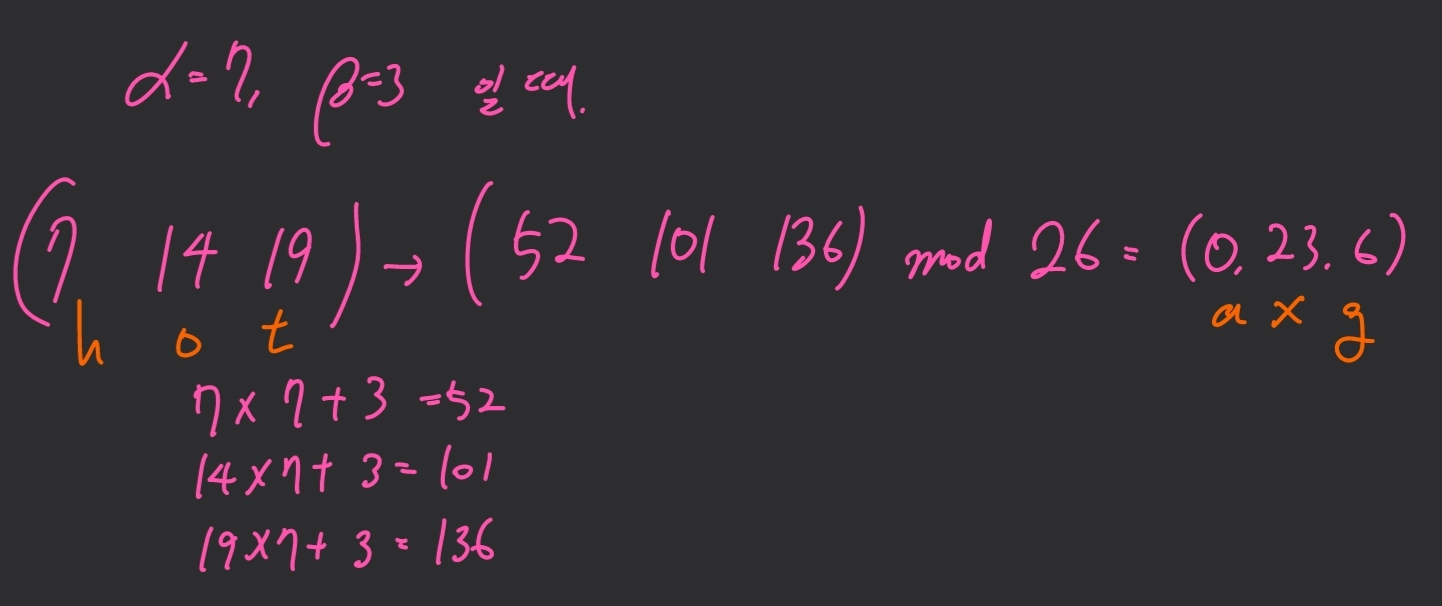 α=7, β=3 일 때.
(7 14 19) → (52 101 136) mod 26 = (0, 23. 6)
h o t a x g
7 x 7 + 3 = 52
14 x 7 + 3 = 101
19 x 7 + 3 = 136